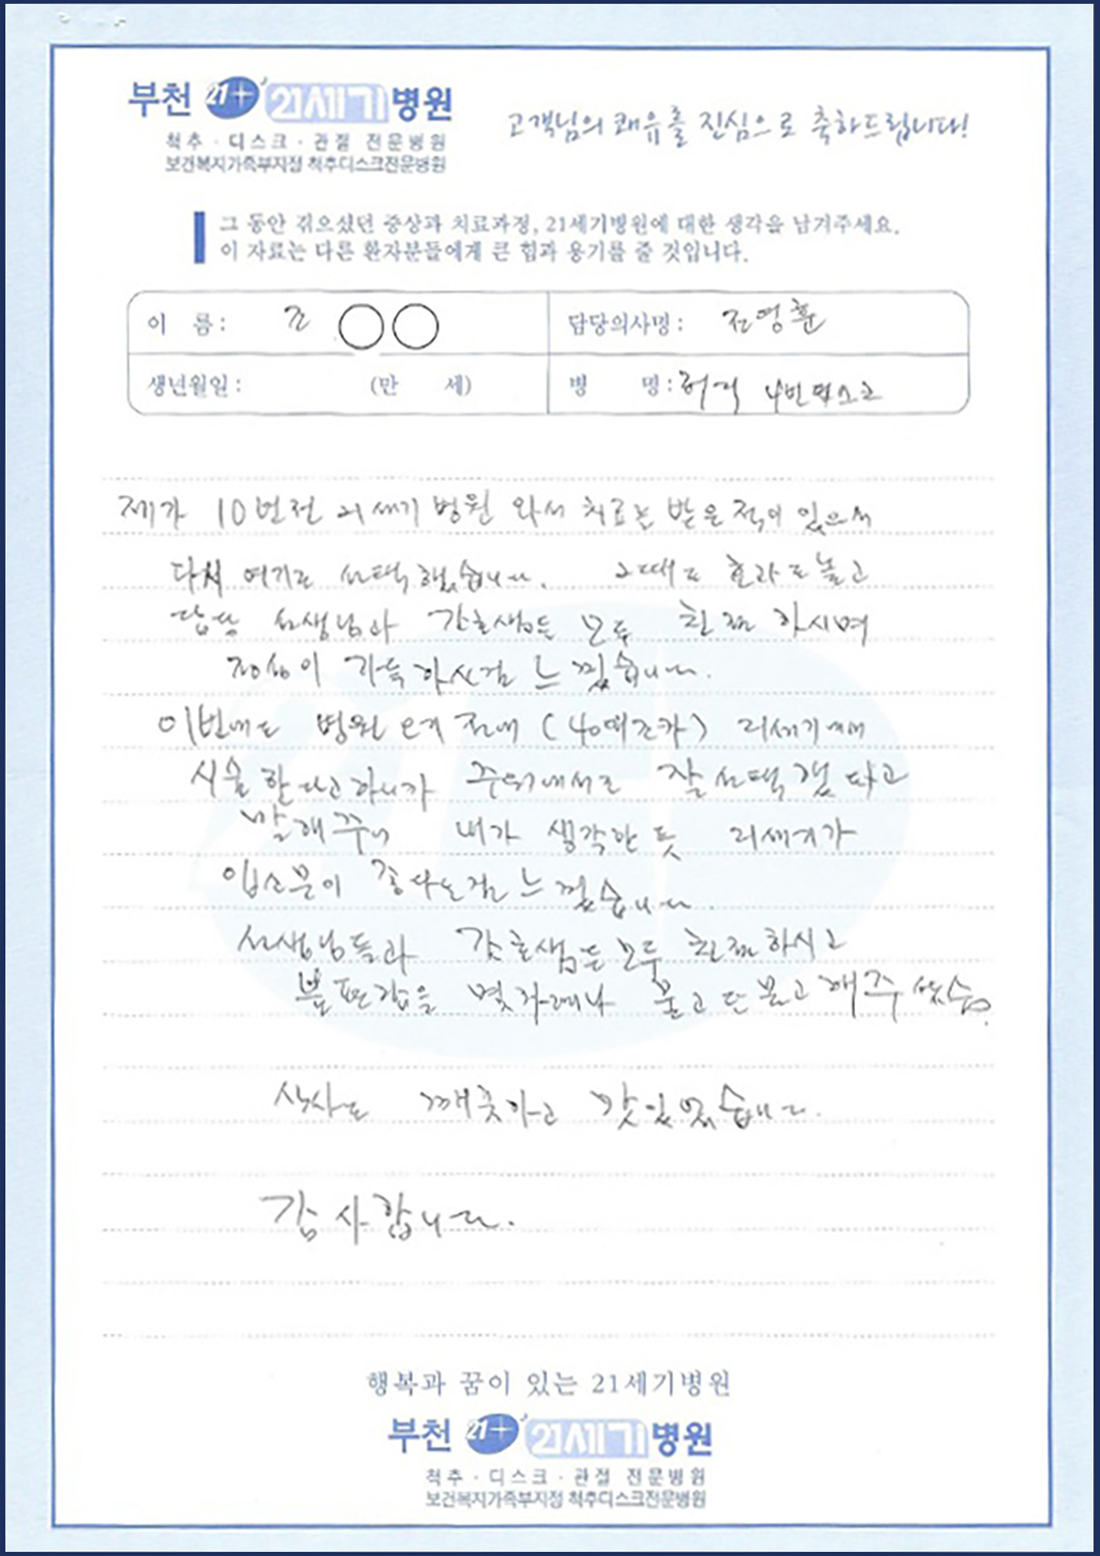 부천 21+ 21세기병원
척추 · 디스크 · 관절 전문병원
보건복지가족부지정 척추디스크전문병원
고객님의 쾌유를 진심으로 축하드립니다!
그 동안 겪으셨던 증상과 치료과정, 21세기병원에 대한 생각을 남겨주세요.
이 자료는 다른 환자분들에게 큰 힘과 용기를 줄 것입니다.
이 름: 조 ○○
담당의사명: 전영훈
생년월일: (만 세)
병 명: 허리 4번 디스크
제가 10년전 21세기 병원 와서 치료를 받은 적이 있으며
다시 여기로 선택했습니다. 그때도 효과도 좋고
담당 선생님과 간호샘들 모두 친절 하시며
정성이 가득하신걸 느꼈습니다.
이번에도 병원 오기 전에 (40대조카) 21세기에
시술 한다고하니까 주위에서도 잘 선택했다고
말해주니 내가 생각한 듯 21세기가
입소문이 좋다는걸 느꼈습니다.
선생님들과 간호샘들 모두 친절하시고
불편함을 몇차례나 물고 또 묻고 해주셨슴.
식사도 깨끗하고 맛있었습니다.
감사합니다.
행복과 꿈이 있는 21세기병원
부천 21+ 21세기병원
척추 · 디스크 · 관절 전문병원
보건복지가족부지정 척추디스크전문병원